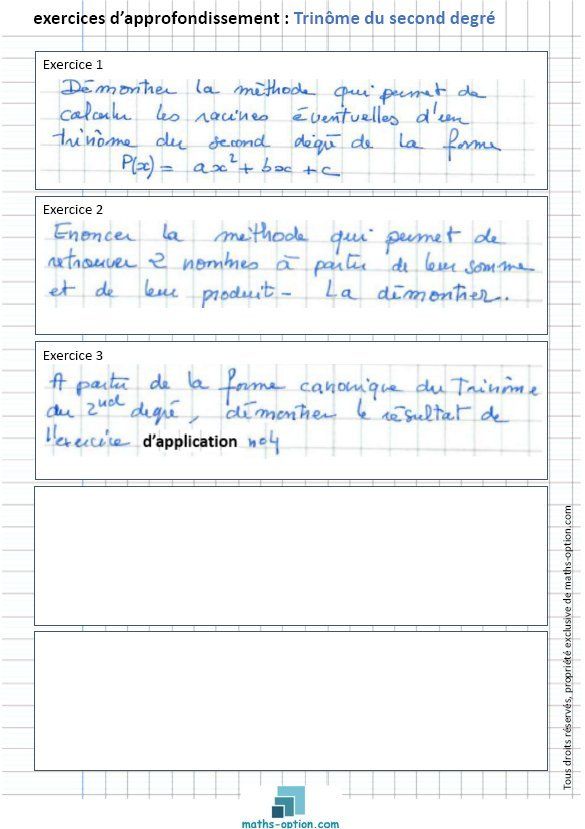 exercices d'approfondissement : Trinôme du second degré
Exercice 1
Démontrer la méthode qui permet de
calculer les racines éventuelles d'un
trinôme du second degré de la forme
P(x) = ax² + bx + c
Exercice 2
Enoncer la méthode qui permet de
retrouver 2 nombres à partir de leur somme
et de leur produit - La démontrer.
Exercice 3
A partir de la forme canonique du Trinôme
du 2nd degré, démontrer le résultat de
l'exercice d'application no4
Tous droits réservés, propriété exclusive de maths-option.com
maths-option.com